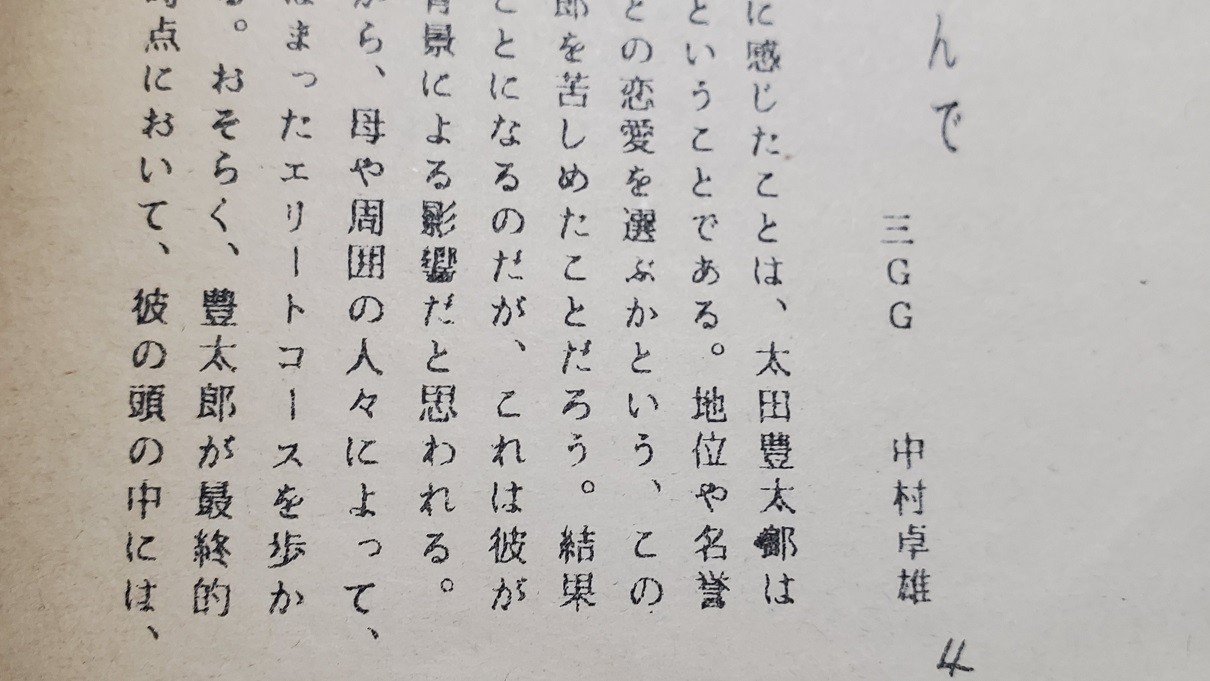 んで
三GG 中村卓雄
に感じたことは、太田豊太郎は
ということである。地位や名誉
との恋愛を選ぶかという、この
郎を苦しめたことだろう。結果
ことになるのだが、これは彼が
背景による影響だと思われる。
がら、母や周囲の人々によって、
はまったエリートコースを歩か
る。おそらく、豊太郎が最終的
時点において、彼の頭の中には、
4